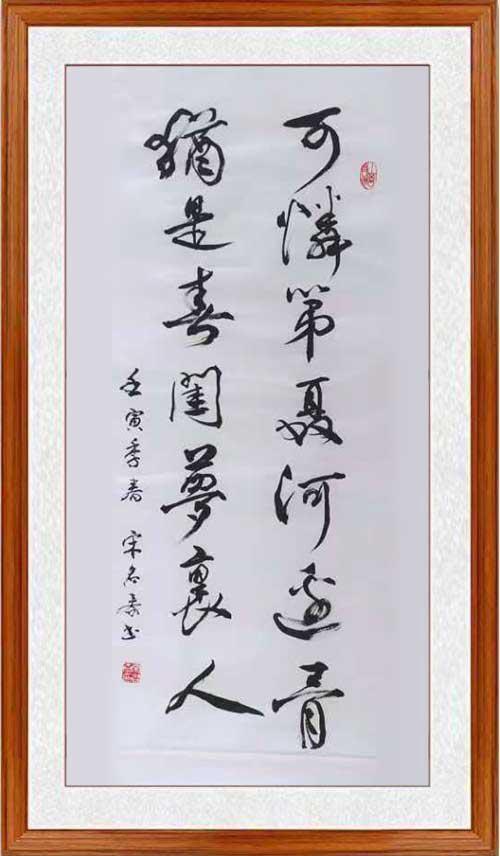 可憐河邊骨
猶是春閨夢裏人
壬寅季春 宋名书